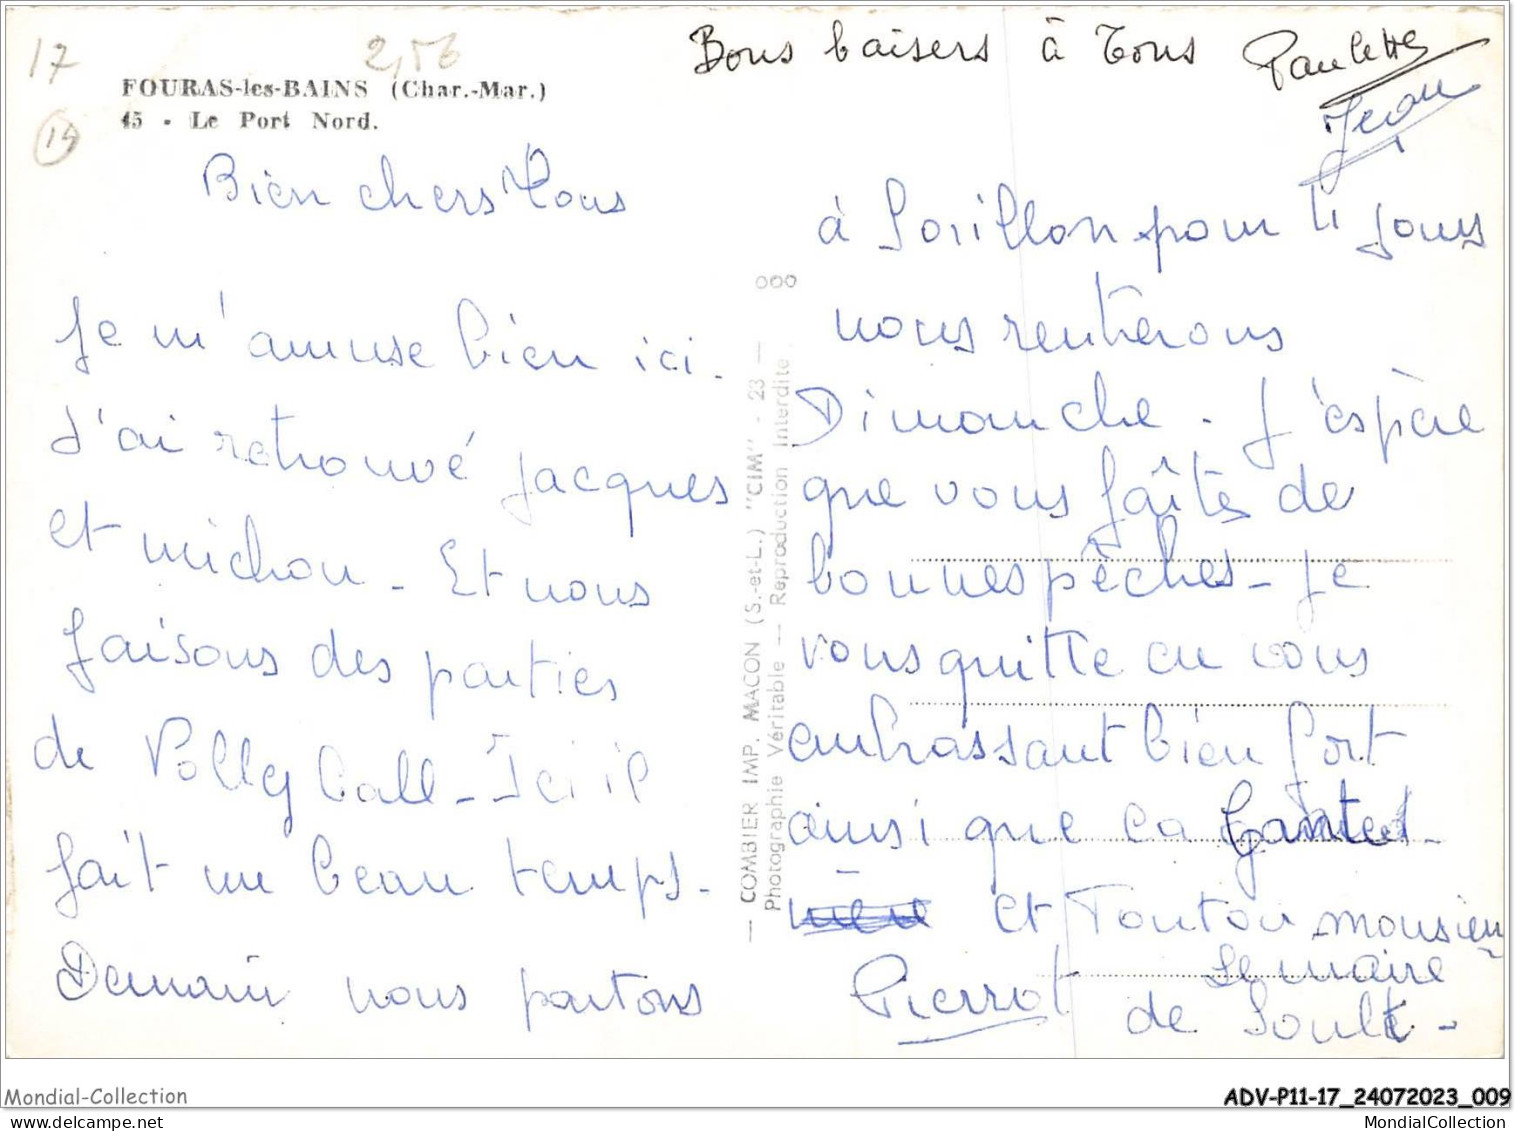 17
2,56
Bons baisers à Tous Paulette
Jean
FOURAS-les-BAINS (Char.-Mar.)
45 - Le Port Nord.
14
Bien chers Tous
Je m'amuse bien ici.
J'ai retrouvé jacques
et michou - Et nous
faisons des parties
de Volley ball - Ici il
fait un beau temps -
Demain nous partons
— COMBIER IMP. MACON (S.-et-L.) "CIM" - 23 —
Photographie Véritable — Reproduction Interdite
à pour 11 jours
nous rentrerons
Dimanche - J'espère
que vous faîtes de
bonnes pêches - Je
vous quitte en vous
embrassant bien fort
ainsi que
et Tonton monsieur
le maire
Pierrot de
Mondial-Collection
mondial-collection.com
ADV-P11-17_24072023_009
MondialCollection